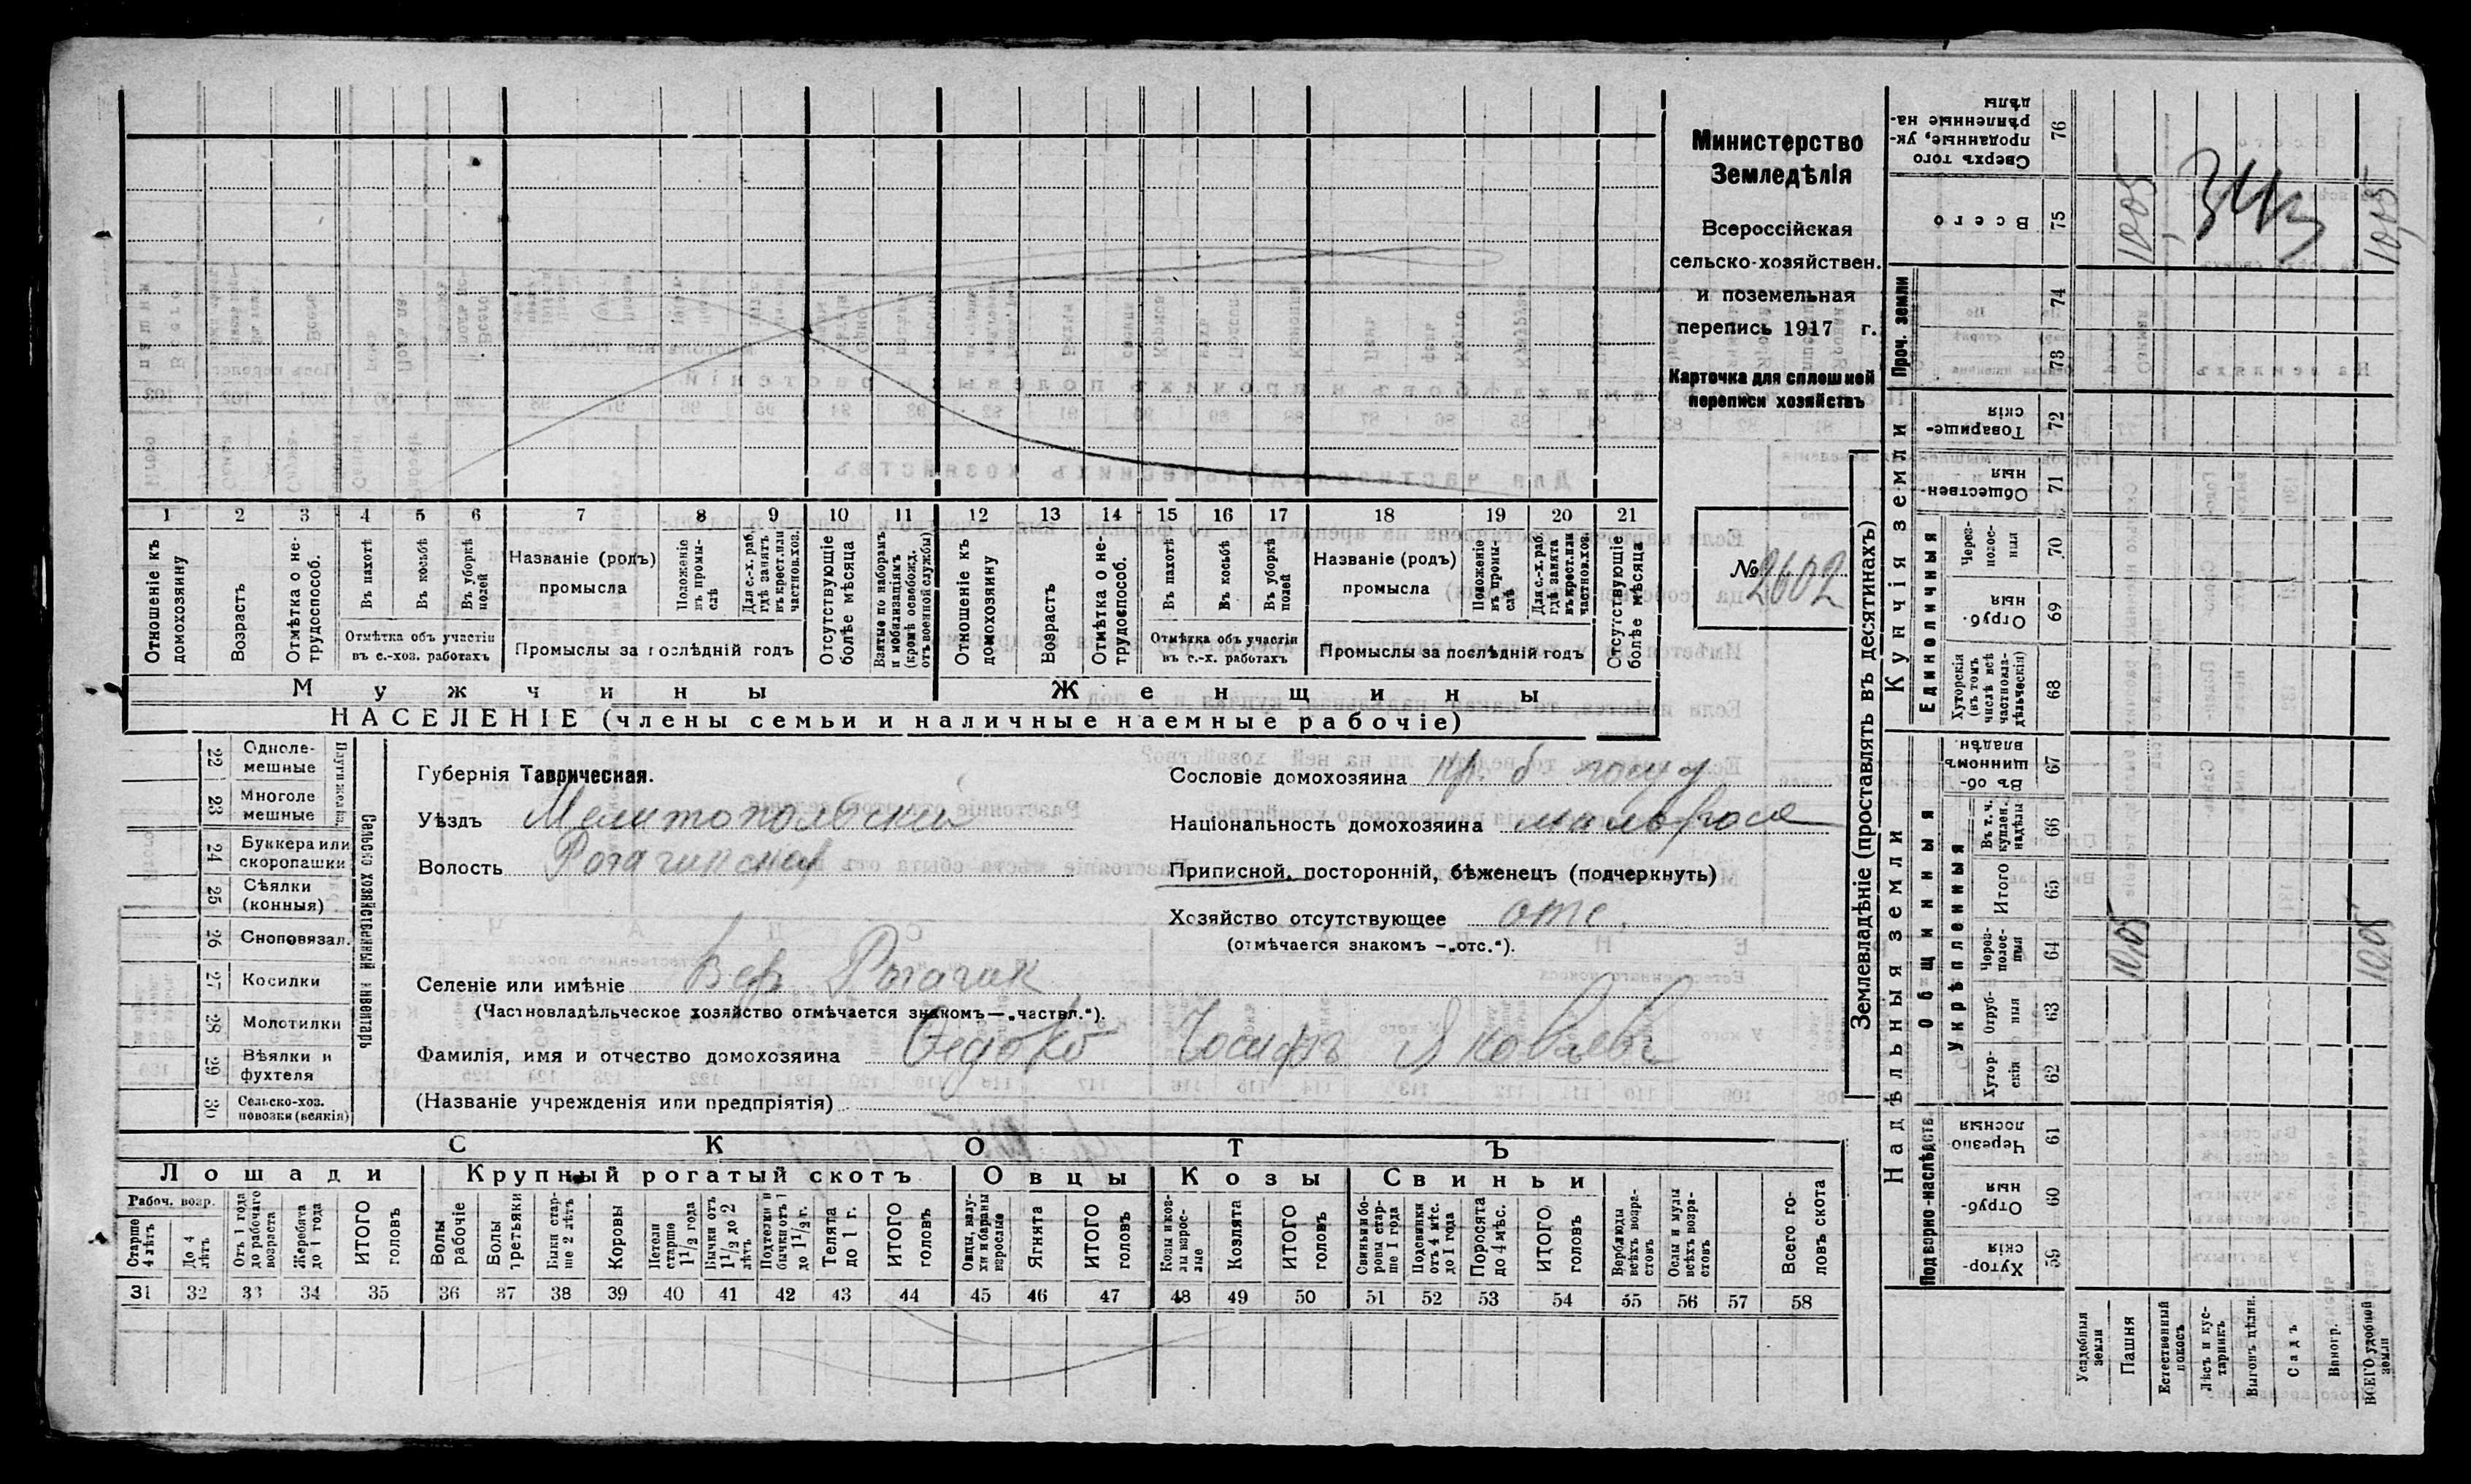 Министерство
Земледѣлія
Всероссійская
сельско-хозяйствен.
и поземельная
перепись 1917 г.
Карточка для сплошной
переписи хозяйствъ
№ 2602
1 2 3 4 5 6 7 8 9 10 11 12 13 14 15 16 17 18 19 20 21
Отношеніе къ домохозяину
Возрастъ
Отмѣтка о не-трудоспособ.
Въ пахотѣ
Въ косьбѣ
Въ уборкѣ полей
Отмѣтка объ участіи
въ с.-хоз. работахъ
Названіе (родъ)
промысла
Положеніе въ промы-слѣ
Для с.-х. раб. гдѣ занятъ въ крест. или частнов. хоз.
Промыслы за послѣдній годъ
Отсутствующіе болѣе мѣсяца
Взятые по наборамъ и мобилизаціямъ (кромѣ освобожд. отъ военной службы)
Отношеніе къ домохозяину
Возрастъ
Отмѣтка о не-трудоспособ.
Въ пахотѣ
Въ косьбѣ
Въ уборкѣ полей
Отмѣтка объ участіи
въ с.-х. работахъ
Названіе (родъ)
промысла
Положеніе въ промы-слѣ
Для с.-х. раб. гдѣ занята въ крест. или частнов. хоз.
Промыслы за послѣдній годъ
Отсутствующіе болѣе мѣсяца
Мужчины
Женщины
НАСЕЛЕНІЕ (члены семьи и наличные наемные рабочіе)
Сельско хозяйственный инвентарь
22 Одноле-мешные
23 Многоле мешные
24 Буккера или скоропашки
25 Сѣялки (конныя)
26 Сноповязал.
27 Косилки
28 Молотилки
29 Вѣялки и фухтеля
30 Сельско-хоз. повозки (всякія)
Губернія Таврическая.
Уѣздъ Мелитопольскій
Волость Рогачинская
Сословіе домохозяина кр. б. госуд
Національность домохозяина малоросс
Приписной, посторонній, бѣженецъ (подчеркнуть)
Хозяйство отсутствующее отс.
(отмѣчается знакомъ —„отс.“).
Селеніе или имѣніе Вер. Рогачик
(Частновладѣльческое хозяйство отмѣчается знакомъ—„частвл.“).
Фамилія, имя и отчество домохозяина Федько Иосифъ Яковлевъ
(Названіе учрежденія или предпріятія)
СКОТЪ
Лошади
Крупный рогатый скотъ
Овцы
Козы
Свиньи
Рабоч. возр.
Старше 4 лѣтъ
До 4 лѣтъ
Отъ 1 года до рабочаго возраста
Жеребята до 1 года
ИТОГО головъ
Волы рабочіе
Волы третьяки
Быки стар-ше 2 лѣтъ
Коровы
Нетели старше 1 1/2 года
Бычки отъ 1 1/2 до 2 лѣтъ
Подтелки и бычки отъ 1 до 1 1/2 г.
Телята до 1 г.
ИТОГО головъ
Овцы, валу-хи и бараны взрослые
Ягнята
ИТОГО головъ
Козы и коз-лы взрос-лые
Козлята
ИТОГО головъ
Свиньи и бо-ровы стар-ше 1 года
Подсвинки отъ 4 мѣс. до 1 года
Поросята до 4 мѣс.
ИТОГО головъ
Верблюды всѣхъ возра-стовъ
Ослы и мулы всѣхъ возра-стовъ
Всего го-ловъ скота
31 32 33 34 35 36 37 38 39 40 41 42 43 44 45 46 47 48 49 50 51 52 53 54 55 56 57 58
Землевладѣніе (проставлять въ десятинахъ)
Надѣльныя земли
Купчія земли
Проч. земли
Подворно-наслѣдств.
Общинныя
Укрѣпленныя
Единоличныя
Хутор-скія 59
Отруб-ныя 60
Черезпо-лосныя 61
Хутор-скія 62
Отруб-ныя 63
Через-полос-ныя 64
Итого 65
Въ т. ч. куплен. надѣлы 66
Въ об-щинномъ владѣн. 67
Хуторскія (въ томъ числѣ всѣ частновла-дѣльческія) 68
Отруб-ныя 69
Через-полос-ныя 70
Обществен-ныя 71
Товарище-скія 72
73
74
Всего 75
Сверхъ того проданные, ук-рѣпленные на-дѣлы 76
Усадебныя земли
Пашня
Естественный покосъ
Лѣсъ и кус-тарникъ
Выгонъ цѣлин.
Садъ
Виногр.
ВСЕГО удобной земли
10,05
10,05
10,05
10,05